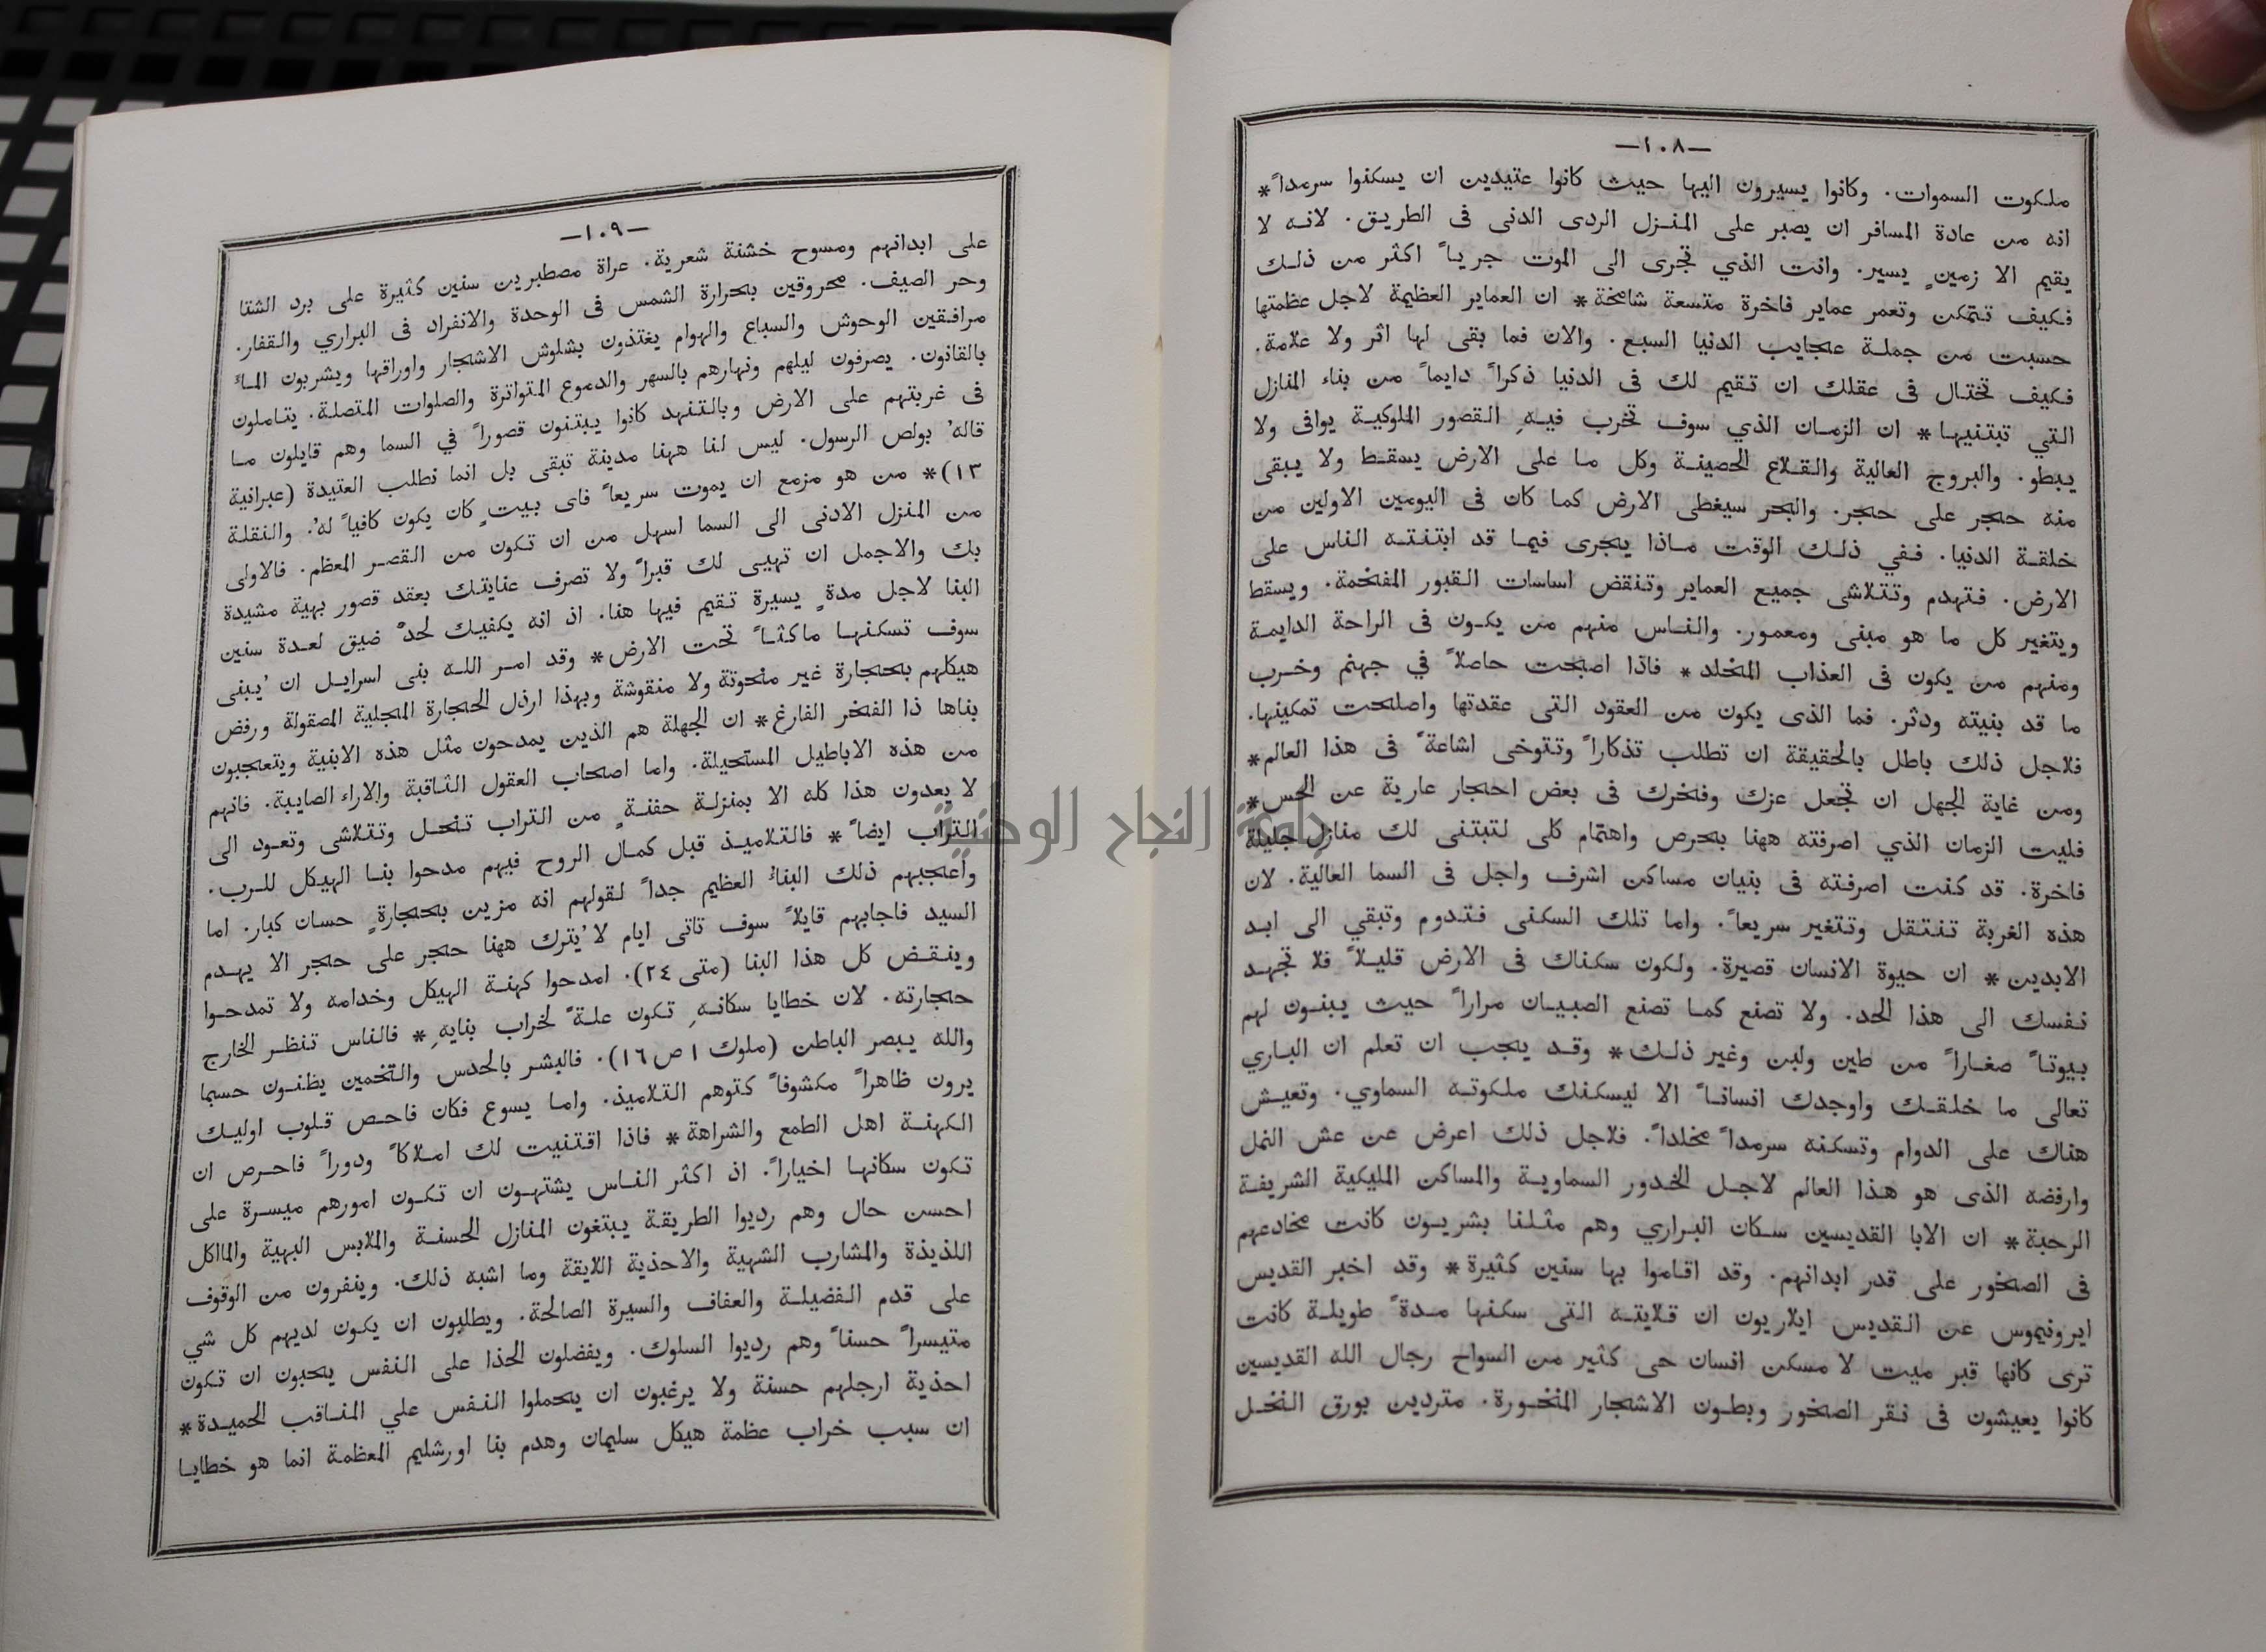 —١٠٨—
ملكوت السموات. وكانوا يسيرون اليها حيث كانوا عتيدين ان يسكنوا سرمداً*
انه من عادة المسافر ان يصبر على المنزل الردى الدنى فى الطريق. لانه لا
يقيم الا زمينٍ يسير. وانت الذي تجرى الى الموت جرياً اكثر من ذلك
فكيف تتمكن وتعمر عماير فاخرة متسعة شامخة* ان العماير العظيمة لاجل عظمتها
حسبت من جملة عجايب الدنيا السبع. والان فما بقى لها اثر ولا علامة.
فكيف تختال فى عقلك ان تقيم لك فى الدنيا ذكراً دايماً من بناء المنازل
التي تبتنيها* ان الزمان الذي سوف تخرب فيهِ القصور الملوكية يوافى ولا
يبطو. والبروج العالية والقلاع الحصينة وكل ما على الارض يسقط ولا يبقى
منه حجر على حجر. والبحر سيغطى الارض كما كان فى اليومين الاولين من
خلقة الدنيا. ففي ذلك الوقت ماذا يجرى فيما قد ابتنته الناس على
الارض. فتهدم وتتلاشى جميع العماير وتنقض اساسات القبور المفخمة. ويسقط
ويتغير كل ما هو مبنى ومعمور. والناس منهم من يكون فى الراحة الدايمة
ومنهم من يكون فى العذاب المخلد* فاذا اصبحت حاصلاً في جهنم وخرب
ما قد بنيته ودثر. فما الذى يكون من العقود التى عقدتها واصلحت تمكينها.
فلاجل ذلك باطل بالحقيقة ان تطلب تذكاراً وتتوخى اشاعةً فى هذا العالم*
ومن غاية الجهل ان تجعل عزك وفخرك فى بعض احجار عارية عن الحس*
فليت الزمان الذي اصرفته ههنا بحرص واهتمام كلى لتبتنى لك منازل جليلة
فاخرة. قد كنت اصرفته فى بنيان مساكن اشرف واجل فى السما العالية. لان
هذه الغربة تنتقل وتتغير سريعاً. واما تلك السكنى فتدوم وتبقي الى ابد
الابدين* ان حيوة الانسان قصيرة. ولكون سكناك فى الارض قليلاً فلا تجهد
نفسك الى هذا الحد. ولا تصنع كما تصنع الصبيان مراراً حيث يبنون لهم
بيوتاً صغاراً من طين ولبن وغير ذلك* وقد يجب ان تعلم ان الباري
تعالى ما خلقك واوجدك انساناً الا ليسكنك ملكوته السماوي. وتعيش
هناك على الدوام وتسكنه سرمداً مخلداً. فلاجل ذلك اعرض عن عش النمل
وارفضه الذى هو هذا العالم لاجل الخدور السماوية والمساكن المليكية الشريفة
الرحبة* ان الابا القديسين سكان البراري وهم مثلنا بشريون كانت مخادعهم
فى الصخور على قدر ابدانهم. وقد اقاموا بها سنين كثيرة* وقد اخبر القديس
ايرونيموس عن القديس ايلاريون ان قلايته التى سكنها مدةً طويلة كانت
ترى كانها قبر ميت لا مسكن انسان حى كثير من السواح رجال الله القديسين
كانوا يعيشون فى نقر الصخور وبطون الاشجار المنخورة. متردين بورق النخل
—١٠٩—
على ابدانهم ومسوح خشنة شعرية. عراة مصطبرين سنين كثيرة على برد الشتا
وحر الصيف. محروقين بحرارة الشمس فى الوحدة والانفراد فى البراري والقفار.
مرافقين الوحوش والسباع والهوام يغتذون بشلوش الاشجار واوراقها ويشربون الماء
بالقانون. يصرفون ليلهم ونهارهم بالسهر والدموع المتواترة والصلوات المتصلة. يتاملون
فى غربتهم على الارض وبالتنهد كانوا يبتنون قصوراً في السما وهم قايلون ما
قالهُ بولص الرسول. ليس لنا ههنا مدينة تبقى بل انما نطلب العتيدة (عبرانية
١٣)* من هو مزمع ان يموت سريعاً فاى بيتٍ كان يكون كافياً لهُ. والنقلة
من المنزل الادنى الى السما اسهل من ان تكون من القصر المعظم. فالاولى
بك والاجمل ان تهيى لك قبراً ولا تصرف عنايتك بعقد قصور بهية مشيدة
البنا لاجل مدةٍ يسيرة تقيم فيها هنا. اذ انه يكفيك لحدٌ ضيق لعدة سنين
سوف تسكنها ماكثاً تحت الارض* وقد امر الله بنى اسرايل ان يُبنى
هيكلهم بحجارة غير منحوتة ولا منقوشة وبهذا ارذل الحجارة المجلية المصقولة ورفض
بناها ذا الفخر الفارغ* ان الجهلة هم الذين يمدحون مثل هذه الابنية ويتعجبون
من هذه الاباطيل المستحيلة. واما اصحاب العقول الثاقبة والاراء الصايبة. فانهم
لا يعدون هذا كله الا بمنزلة حفنةٍ من التراب تنحل وتتلاشى وتعود الى
التراب ايضاً* فالتلاميذ قبل كمال الروح فيهم مدحوا بنا الهيكل للرب.
واعجبهم ذلك البناءُ العظيم جداً لقولهم انه مزين بحجارةٍ حسان كبار. اما
السيد فاجابهم قايلاً سوف تاتى ايام لا يُترك ههنا حجر على حجر الا يهدم
وينقض كل هذا البنا (متى ٢٤). امدحوا كهنة الهيكل وخدامه ولا تمدحوا
حجارته. لان خطايا سكانهِ تكون علةً لخراب بنايهِ* فالناس تنظر الخارج
والله يبصر الباطن (ملوك ١ ص ١٦). فالبشر بالحدس والتخمين يظنون حسبما
يرون ظاهراً مكشوفاً كتوهم التلاميذ. واما يسوع فكان فاحص قلوب اوليك
الكهنة اهل الطمع والشراهة* فاذا اقتنيت لك املاكاً ودوراً فاحرص ان
تكون سكانها اخياراً. اذ اكثر الناس يشتهون ان تكون امورهم ميسرة على
احسن حال وهم رديوا الطريقة يبتغون المنازل الحسنة والملابس البهية والمااكل
اللذيذة والمشارب الشهية والاحذية اللايقة وما اشبه ذلك. وينفرون من الوقوف
على قدم الفضيلة والعفاف والسيرة الصالحة. ويطلبون ان يكون لديهم كل شي
متيسراً حسناً وهم رديوا السلوك. ويفضلون الحذا على النفس يحبون ان تكون
احذية ارجلهم حسنة ولا يرغبون ان يحملوا النفس علي المناقب الحميدة*
ان سبب خراب عظمة هيكل سليمان وهدم بنا اورشليم المعظمة انما هو خطايا
جامعة النجاح الوطنية